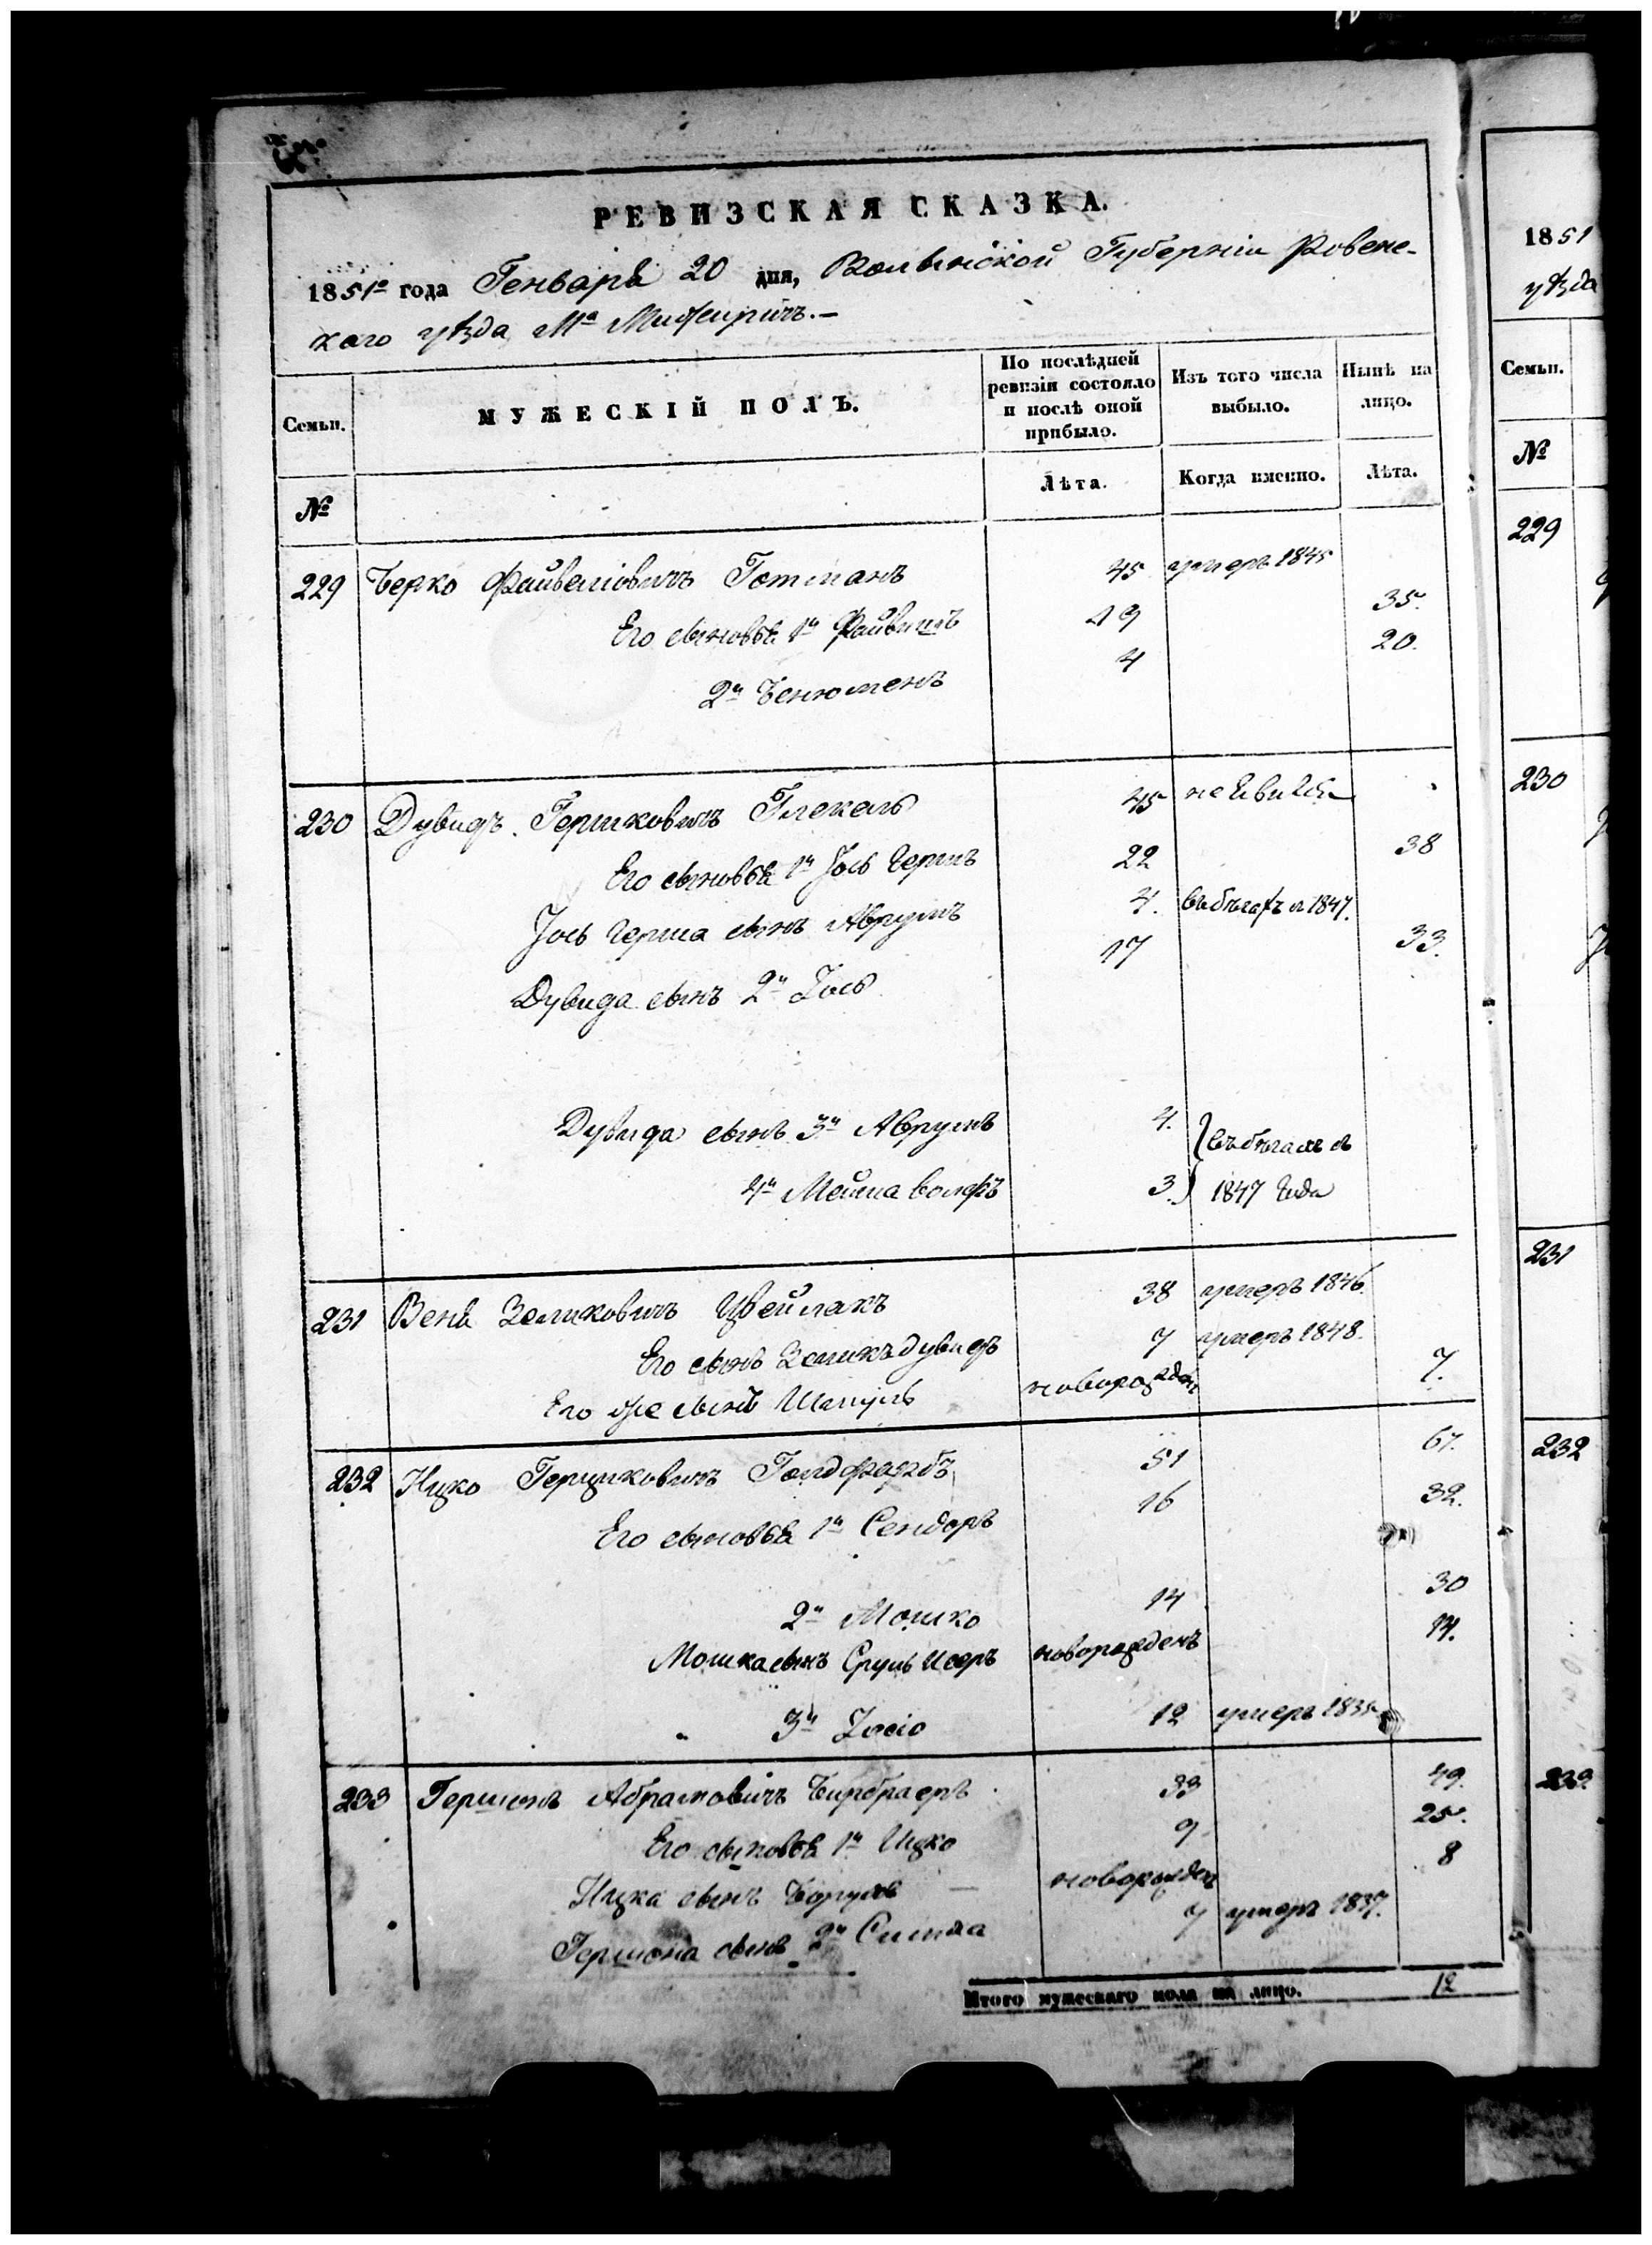 РЕВИЗСКАЯ СКАЗКА.
1851го года Генваря 20 дня, Волынской Губерніи Ровенс-
каго уѣзда Мѣ Межиричъ.-
Семьи.
МУЖЕСКІЙ ПОЛЪ.
По послѣдней ревизіи состояло и послѣ оной прибыло.
Изъ того числа выбыло.
Нынѣ на лицо.
№
Лѣта.
Когда именно.
Лѣта.
229 Берко Файвелювичъ Готманъ 45 умеръ 1845
Его сыновья 1й Файвишъ 19 35.
2й Бенюменъ 4 20.
230 Дувидъ Гершковичъ Глекель 45 не
Его сыновья 1й Іось Гершъ 22 38
Іось Герша сынъ Аврумъ 4. въ бѣгахъ с 1847.
Дувида сынъ 2й Іось 17 33.
Дувида сынъ 3й Аврумъ 4. въ бѣгахъ съ
4й Мейша Волфъ 3. 1847 года
231 Веня Зеликовичъ Цвейлакъ 38 умеръ 1846.
Его сынъ Зеликъ Дувидъ 7 умеръ 1848.
Его же сынъ новорожденъ 7.
232 Ицко Гершковичъ Голдфарбъ 51 67.
Его сыновья 1й Сендоръ 16 32.
2й Мошко 14 30
Мошка сынъ Сруль новорожденъ 14.
3й Іосіо 12 умеръ 1835
233 Гершонъ Абрамовичъ Бирбраеръ 33 49.
Его сыновья 1й Ицко 9 25.
Ицка сынъ новорожден 8
Гершона сынъ 2й Симха 7 умеръ 1837.
Итого мужескаго пола на лицо. 12
1851
уѣзда
Семьи.
№
229
230
231
232
233